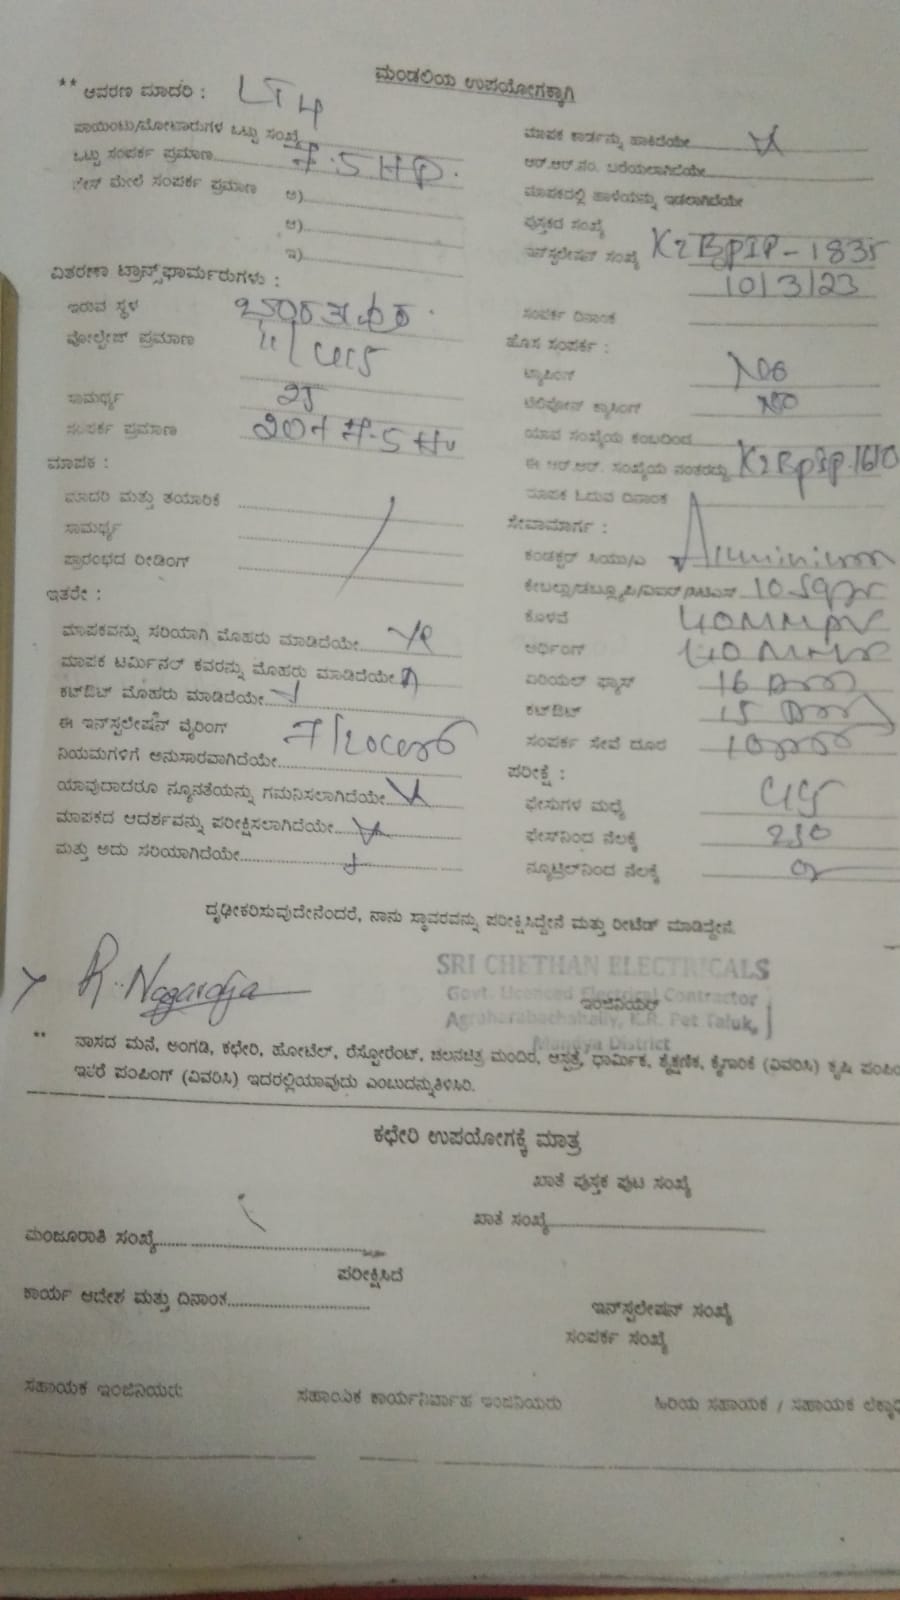 ಮಂಡಲಿಯ ಉಪಯೋಗಕ್ಕಾಗಿ
** ಆವರಣ ಮಾದರಿ : LT 4
ಪಾಯಿಂಟು/ಮೋಟಾರುಗಳ ಒಟ್ಟು ಸಂಖ್ಯೆ
ಒಟ್ಟು ಸಂಪರ್ಕ ಪ್ರಮಾಣ 7.5 HP.
ಮೇಲೆ ಸಂಪರ್ಕ ಪ್ರಮಾಣ ಅ)
ಆ)
ಇ)
ವಿತರಣಾ ಟ್ರಾನ್ಸ್‌ಫಾರ್ಮರುಗಳು :
ಇರುವ ಸ್ಥಳ
ವೋಲ್ಟೇಜ್ ಪ್ರಮಾಣ
ಸಾಮರ್ಥ್ಯ 25
ಸಂಪರ್ಕ ಪ್ರಮಾಣ
ಮಾಪಕ :
ಮಾದರಿ ಮತ್ತು ತಯಾರಿಕೆ
ಸಾಮರ್ಥ್ಯ
ಪ್ರಾರಂಭದ ರೀಡಿಂಗ್
ಇತರೇ :
ಮಾಪಕವನ್ನು ಸರಿಯಾಗಿ ಮೊಹರು ಮಾಡಿದೆಯೇ
ಮಾಪಕ ಟರ್ಮಿನಲ್ ಕವರನ್ನು ಮೊಹರು ಮಾಡಿದೆಯೇ
ಕಟ್‌ಔಟ್ ಮೊಹರು ಮಾಡಿದೆಯೇ
ಈ ಇನ್‌ಸ್ಟಲೇಷನ್ ವೈರಿಂಗ್
ನಿಯಮಗಳಿಗೆ ಅನುಸಾರವಾಗಿದೆಯೇ
ಯಾವುದಾದರೂ ನ್ಯೂನತೆಯನ್ನು ಗಮನಿಸಲಾಗಿದೆಯೇ
ಮಾಪಕದ ಆದರ್ಶವನ್ನು ಪರೀಕ್ಷಿಸಲಾಗಿದೆಯೇ
ಮತ್ತು ಅದು ಸರಿಯಾಗಿದೆಯೇ
ಮಾಪಕ ಕಾರ್ಡನ್ನು ಹಾಕಿದೆಯೇ
ಆರ್.ಆರ್.ನಂ. ಬರೆಯಲಾಗಿದೆಯೇ
ಮಾಪಕದಲ್ಲಿ ಹಾಳೆಯನ್ನು ಇಡಲಾಗಿದೆಯೇ
ಪುಸ್ತಕದ ಸಂಖ್ಯೆ
ಇನ್‌ಸ್ಟಲೇಷನ್ ಸಂಖ್ಯೆ K2BPIP-1835
10/3/23
ಸಂಪರ್ಕ ದಿನಾಂಕ
ಹೊಸ ಸಂಪರ್ಕ :
ಟ್ಯಾಪಿಂಗ್ No
ಟೆಲಿಫೋನ್ ಕ್ರಾಸಿಂಗ್ No
ಯಾವ ಸಂಖ್ಯೆಯ ಕಂಬದಿಂದ
ಈ ಆರ್.ಆರ್. ಸಂಖ್ಯೆಯ ನಂತರದ್ದು K2BPIP.1610
ಮಾಪಕ ಓದುವ ದಿನಾಂಕ
ಸೇವಾಮಾರ್ಗ :
ಕಂಡಕ್ಟರ್ ಸಿಯು/ಎ Aluminium
10 Sqmm
ಕೊಳವೆ
ಅರ್ಥಿಂಗ್
ಏರಿಯಲ್ ಫ್ಯೂಸ್ 16
ಕಟ್‌ಔಟ್ 15
ಸಂಪರ್ಕ ಸೇವೆ ದೂರ
ಪರೀಕ್ಷೆ :
ಫೇಸುಗಳ ಮಧ್ಯೆ
ಫೇಸ್‌ನಿಂದ ನೆಲಕ್ಕೆ 230
ನ್ಯೂಟ್ರಲ್‌ನಿಂದ ನೆಲಕ್ಕೆ
ದೃಢೀಕರಿಸುವುದೇನೆಂದರೆ, ನಾನು ಸ್ಥಾವರವನ್ನು ಪರೀಕ್ಷಿಸಿದ್ದೇನೆ ಮತ್ತು ರೀಟೆಡ್ ಮಾಡಿದ್ದೇನೆ.
R. Nagaraja
SRI CHETHAN ELECTRICALS
Govt. Licenced Electrical Contractor
ಇಂಜಿನಿಯರ್
Agraharabachahally, K.R. Pet Taluk,
Mandya District
** ವಾಸದ ಮನೆ, ಅಂಗಡಿ, ಕಛೇರಿ, ಹೋಟೆಲ್, ರೆಸ್ಟೋರೆಂಟ್, ಚಲನಚಿತ್ರ ಮಂದಿರ, ಆಸ್ಪತ್ರೆ, ಧಾರ್ಮಿಕ, ಶೈಕ್ಷಣಿಕ, ಕೈಗಾರಿಕೆ (ವಿವರಿಸಿ) ಕೃಷಿ
ಇತರೆ ಪಂಪಿಂಗ್ (ವಿವರಿಸಿ) ಇದರಲ್ಲಿಯಾವುದು ಎಂಬುದನ್ನುತಿಳಿಸಿರಿ.
ಕಛೇರಿ ಉಪಯೋಗಕ್ಕೆ ಮಾತ್ರ
ಖಾತೆ ಪುಸ್ತಕ ಪುಟ ಸಂಖ್ಯೆ
ಖಾತೆ ಸಂಖ್ಯೆ
ಮಂಜೂರಾತಿ ಸಂಖ್ಯೆ
ಪರೀಕ್ಷಿಸಿದೆ
ಕಾರ್ಯ ಆದೇಶ ಮತ್ತು ದಿನಾಂಕ
ಇನ್‌ಸ್ಟಲೇಷನ್ ಸಂಖ್ಯೆ
ಸಂಪರ್ಕ ಸಂಖ್ಯೆ
ಸಹಾಯಕ ಇಂಜಿನಿಯರು ಸಹಾಯಕ ಕಾರ್ಯನಿರ್ವಾಹ ಇಂಜಿನಿಯರು ಹಿರಿಯ ಸಹಾಯಕ / ಸಹಾಯಕ